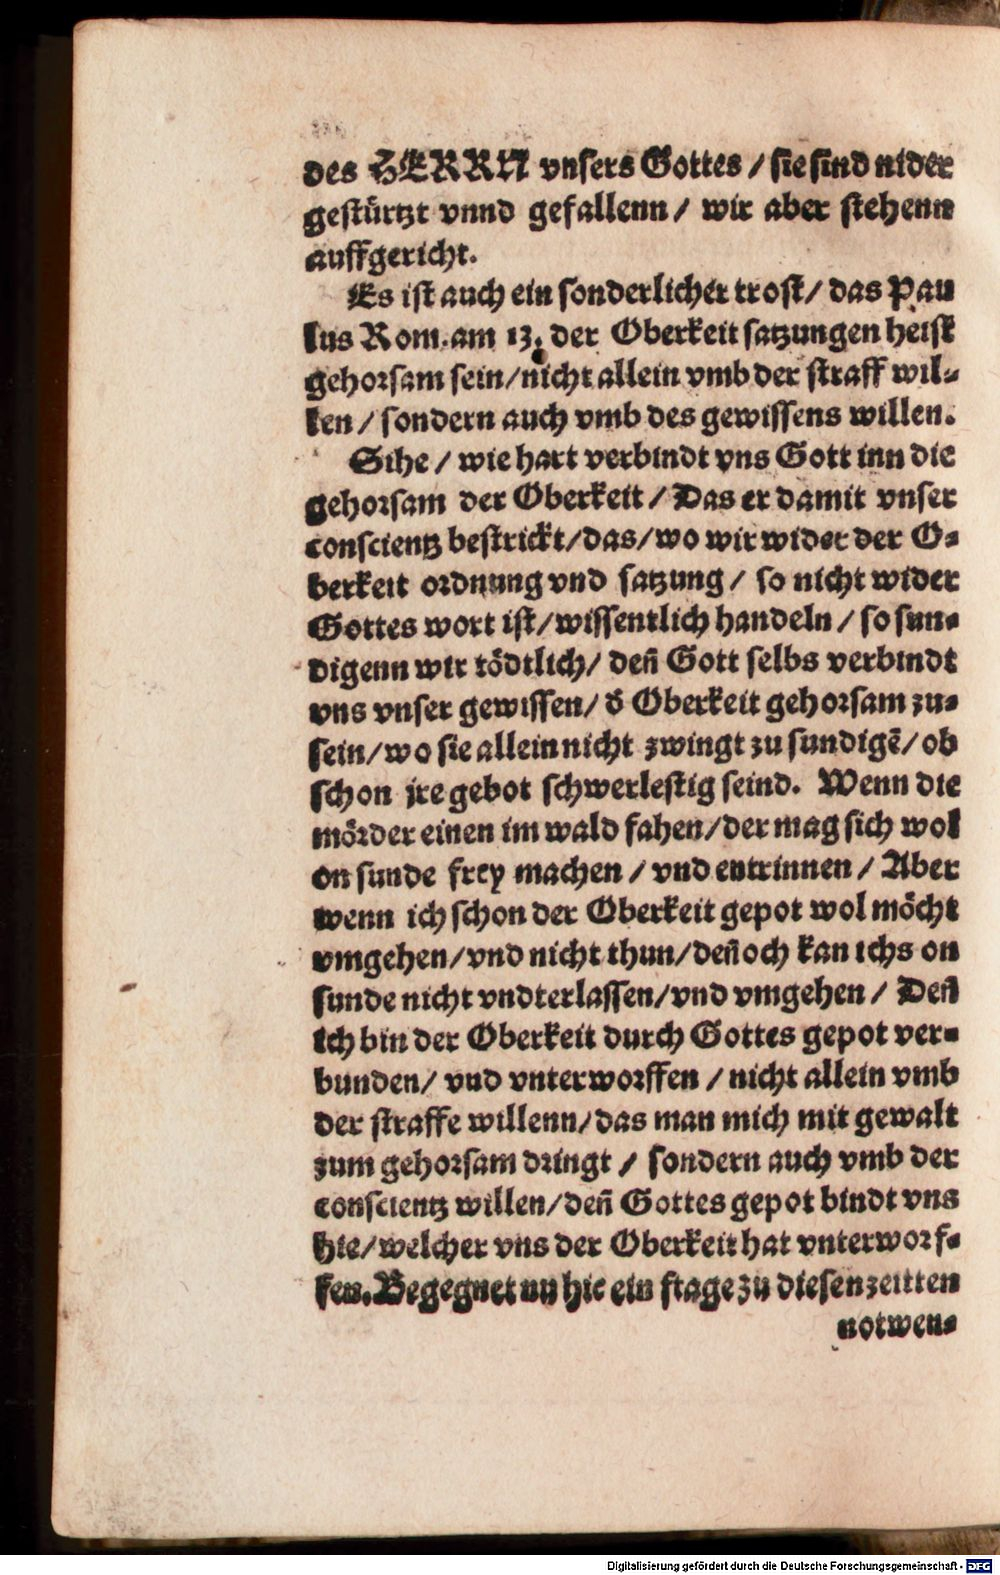 des HERRN vnsers Gottes / sie sind nider
gestürtzt vnnd gefallenn / wir aber stehenn
auffgericht.
Es ist auch ein sonderlicher trost / das Pau
lus Rom. am 13. der Oberkeit satzungen heist
gehorsam sein / nicht allein vmb der straff wil⸗
len / sondern auch vmb des gewissens willen.
Sihe / wie hart verbindt vns Gott inn die
gehorsam der Oberkeit / Das er damit vnser
conscientz bestrickt / das / wo wir wider der O⸗
berkeit ordnung vnd satzung / so nicht wider
Gottes wort ist / wissentlich handeln / so sun⸗
digenn wir tödtlich / deñ Gott selbs verbindt
vns vnser gewissen / d̕ Oberkeit gehorsam zu⸗
sein / wo sie allein nicht zwingt zu sundigẽ / ob
schon jre gebot schwerlestig seind. Wenn die
mörder einen im wald fahen / der mag sich wol
on sunde frey machen / vnd entrinnen / Aber
wenn ich schon der Oberkeit gepot wol möcht
vmgehen / vnd nicht thun / deñoch kan ichs on
sunde nicht vndterlassen / vnd vmgehen / Deñ
ich bin der Oberkeit durch Gottes gepot ver⸗
bunden / vnd vnterworffen / nicht allein vmb
der straffe willenn / das man mich mit gewalt
zum gehorsam dringt / sondern auch vmb der
conscientz willen / deñ Gottes gepot bindt vns
hie / welcher vns der Oberkeit hat vnterworf⸗
fen. Begegnet nu hie ein frage zu diesen zeitten
notwen⸗
Digitalisierung gefördert durch die Deutsche Forschungsgemeinschaft - DFG